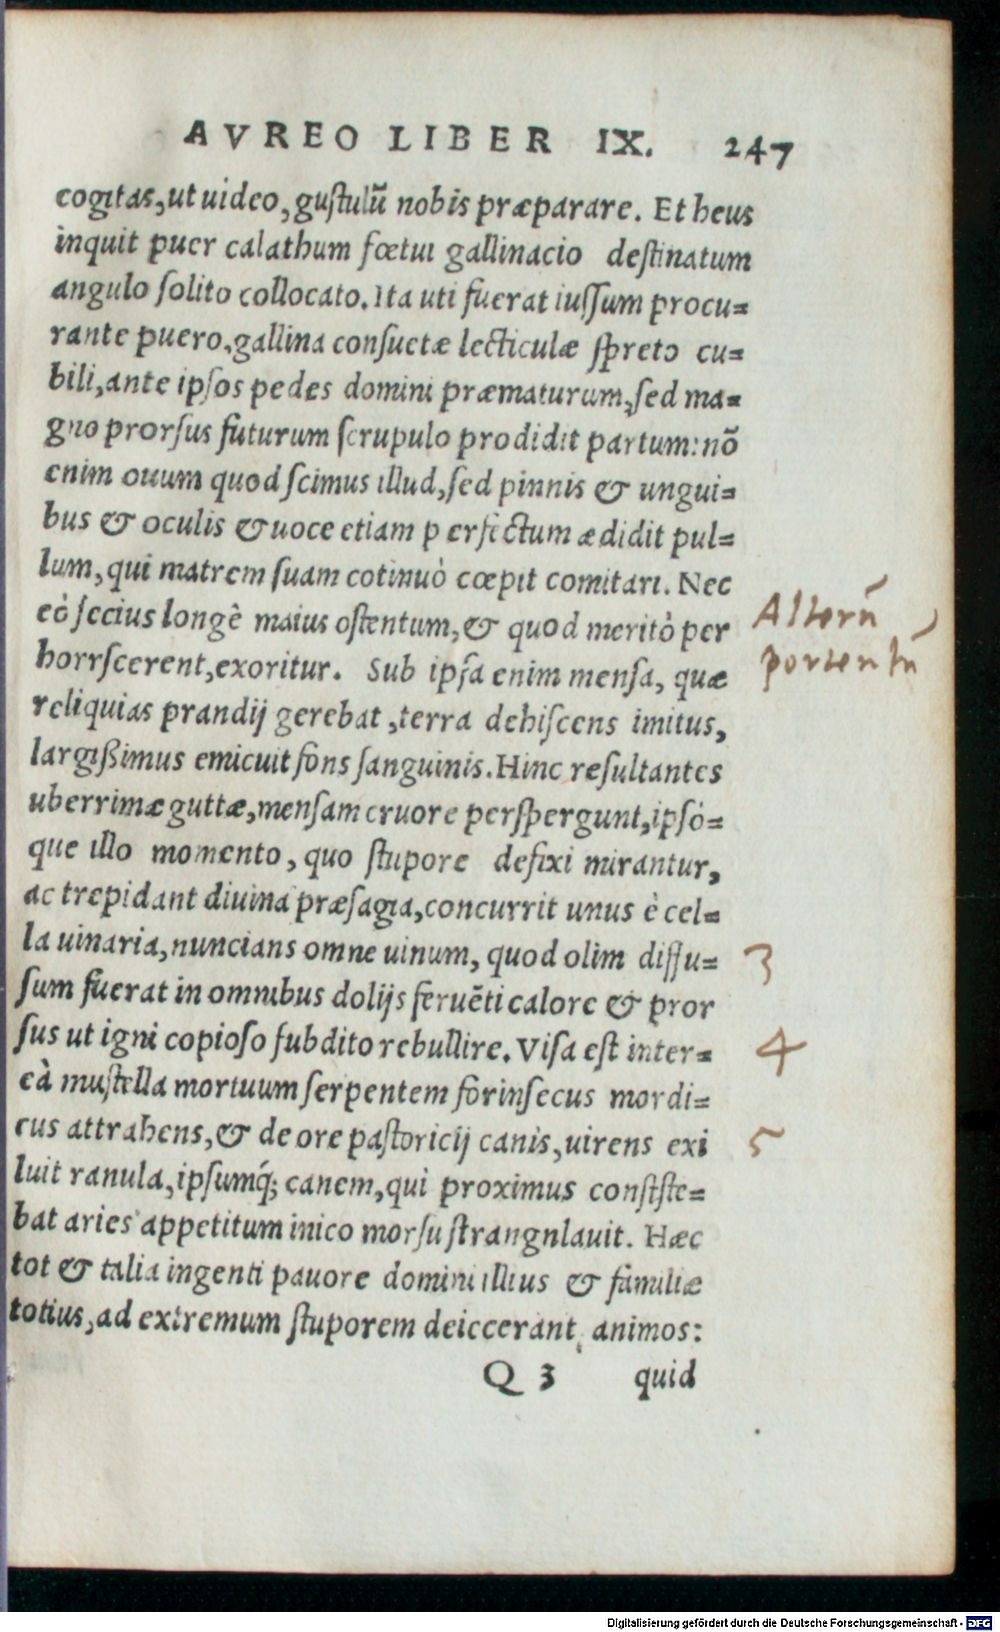 AVREO LIBER IX. 247
cogitas, ut uideo, gustulũ nobis præparare. Et heus
inquit puer calathum fœtui gallinacio destinatum
angulo solito collocato. Ita uti fuerat iussum procu=
rante puero, gallina consuetæ lecticulæ spreto cu=
bili, ante ipsos pedes domini præmaturum, sed ma=
gno prorsus futurum scrupulo prodidit partum: nõ
enim ouum quod scimus illud, sed pinnis & ungui=
bus & oculis & uoce etiam perfectum ædidit pul=
lum, qui matrem suam cotinuò cœpit comitari. Nec
eò secius longè maius ostentum, & quod meritò per
horrscerent, exoritur. Sub ipsa enim mensa, quæ
reliquias prandij gerebat, terra dehiscens imitus,
largißimus emicuit fons sanguinis. Hinc resultantes
uberrimæ guttæ, mensam cruore perspergunt, ipsó=
que illo momento, quo stupore defixi mirantur,
ac trepidant diuina præsagia, concurrit unus è cel=
la uinaria, nuncians omne uinum, quod olim diffu=
sum fuerat in omnibus dolijs feruẽti calore & pror
sus ut igni copioso subdito rebullire. Visa est inter=
eà mustella mortuum serpentem forinsecus mordi=
cus attrahens, & de ore pastoricij canis, uirens exi
luit ranula, ipsumq́; canem, qui proximus consiste=
bat aries appetitum inico morsu strangnlauit. Hæc
tot & talia ingenti pauore domini illius & familiæ
totius, ad extremum stuporem deiecerant animos:
Q 3 quid
Alterũ
portentũ
3
4
5
Digitalisierung gefördert durch die Deutsche Forschungsgemeinschaft - DFG